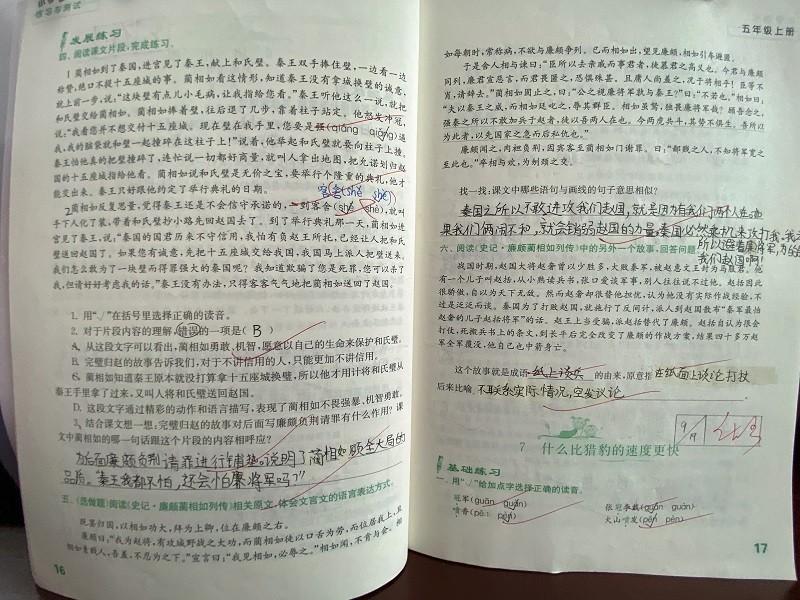 练习与测试
发展练习
四、阅读课文片段,完成练习。
1 蔺相如到了秦国,进宫见了秦王,献上和氏璧。秦王双手捧住璧,一边看一边
称赞,绝口不提十五座城的事。蔺相如看这情形,知道秦王没有拿城换璧的诚意,
就上前一步,说:“这块璧有点儿小毛病,让我指给您看。”秦王听他这么一说,就把
和氏璧交给蔺相如。蔺相如捧着璧,往后退了几步,靠着柱子站定。他怒发冲冠,
说:“我看您并不想交付十五座城。现在璧在我手里,您要是强(qiǎng qiáng)逼
我,我的脑袋就和璧一起撞碎在这柱子上!”说着,他举起和氏璧就要向柱子上撞。
秦王怕他真的把璧撞碎了,连忙说一切都好商量,就叫人拿出地图,把允诺划归赵
国的十五座城指给他看。蔺相如说和氏璧是无价之宝,要举行个隆重的典礼,他才
能交出来。秦王只好跟他约定了举行典礼的日期。
客舍(shě shè)
2蔺相如反复思量,觉得秦王还是不会信守承诺的,一到客舍(shě shè),就叫
手下人化了装,带着和氏璧抄小路先回赵国去了。到了举行典礼那一天,蔺相如进
宫见了秦王,说:“秦国的国君历来不守信用,我怕有负赵王所托,已经让人把和氏
璧送回赵国了。如果您有诚意,先把十五座城交给我国,我国马上派人把璧送来。
我们怎么敢为了一块璧而得罪强大的秦国呢?我知道欺骗了您是死罪,您可以杀了
我,但请好好考虑我的话。”秦王没有办法,只得客客气气地把蔺相如送回了赵国。
1. 用“√”在括号里选择正确的读音。
2. 对于片段内容的理解,错误的一项是( B )
A. 从这段文字可以看出,蔺相如勇敢、机智,愿意以自己的生命来保护和氏璧。
B. 完璧归赵的故事告诉我们,对于不讲信用的人,只能更加不讲信用。
C. 蔺相如知道秦王原本就没打算拿十五座城换璧,所以他才用计将和氏璧从
秦王手里拿了过来,又叫人将和氏璧送回赵国。
D. 这段文字通过精彩的动作和语言描写,表现了蔺相如不畏强暴、机智勇敢。
3. 结合课文想一想:完璧归赵的故事对后面写廉颇负荆请罪有什么作用?课
文中蔺相如的哪一句话跟这个片段的内容相呼应?
为后面廉颇负荆请罪进行铺垫。说明了蔺相如顾全大局的
品质。“秦王我都不怕,还会怕廉将军吗?”
五、(选做题)阅读《史记·廉颇蔺相如列传》相关原文,体会文言文的语言表达方式。
既罢归国,以相如功大,拜为上卿,位在廉颇之右。
廉颇曰:“我为赵将,有攻城野战之大功,而蔺相如徒以口舌为劳,而位居我上,且
相如素贱人,吾羞,不忍为之下。”宣言曰:“我见相如,必辱之。”相如闻,不肯与会。相
16
五年级上册
如每朝时,常称病,不欲与廉颇争列。已而相如出,望见廉颇,相如引车避匿。
于是舍人相与谏曰:“臣所以去亲戚而事君者,徒慕君之高义也。今君与廉颇
同列,廉君宣恶言,而君畏匿之,恐惧殊甚。且庸人尚羞之,况于将相乎!臣等不
肖,请辞去。”蔺相如固止之,曰:“公之视廉将军孰与秦王?”曰:“不若也。”相如曰:
“夫以秦王之威,而相如廷叱之,辱其群臣。相如虽驽,独畏廉将军哉?顾吾念之,
强秦之所以不敢加兵于赵者,徒以吾两人在也。今两虎共斗,其势不俱生。吾所以
为此者,以先国家之急而后私仇也。”
廉颇闻之,肉袒负荆,因宾客至蔺相如门谢罪。曰:“鄙贱之人,不知将军宽之
至此也。”卒相与欢,为刎颈之交。
找一找:课文中哪些语句与画线的句子意思相似?
秦国之所以不敢进攻我们赵国,就是因为有我们两个人在。如
果我们俩闹不和,就会削弱赵国的力量,秦国必然乘机来攻打我
所以避着廉将军,为的
我们赵国啊!
六、阅读《史记·廉颇蔺相如列传》中的另外一个故事,回答问题
战国时期,赵国大将赵奢曾以少胜多,大败秦军,被赵惠文王封为马服君。他
有一个儿子叫赵括,从小熟读兵书,张口爱谈军事,别人往往说不过他。赵括因此
很骄傲,自以为天下无敌。然而赵奢却很替他担忧,认为他没有实际作战经验,不
过是泛泛而谈。秦国为了打败赵国,就施行了反间计,派人到赵国散布“秦军最怕
赵奢的儿子赵括将军”的话。赵王上当受骗,派赵括替代了廉颇。赵括自认为很会
打仗,死搬兵书上的条文,到长平后完全改变了廉颇的作战方案,结果四十多万赵
军全军覆没,他自己也中箭身亡。
这个故事就是成语 纸上谈兵 的由来,原意指 在纸面上谈论打仗
后来比喻 不联系实际情况,空发议论
9/19
7 什么比猎豹的速度更快
基础练习
一、用“√”给加点字选择正确的读音。
冠军(guān guàn) 张冠李戴(guān guàn)
喷香(pēn pèn) 火山喷发(pēn pèn)
17